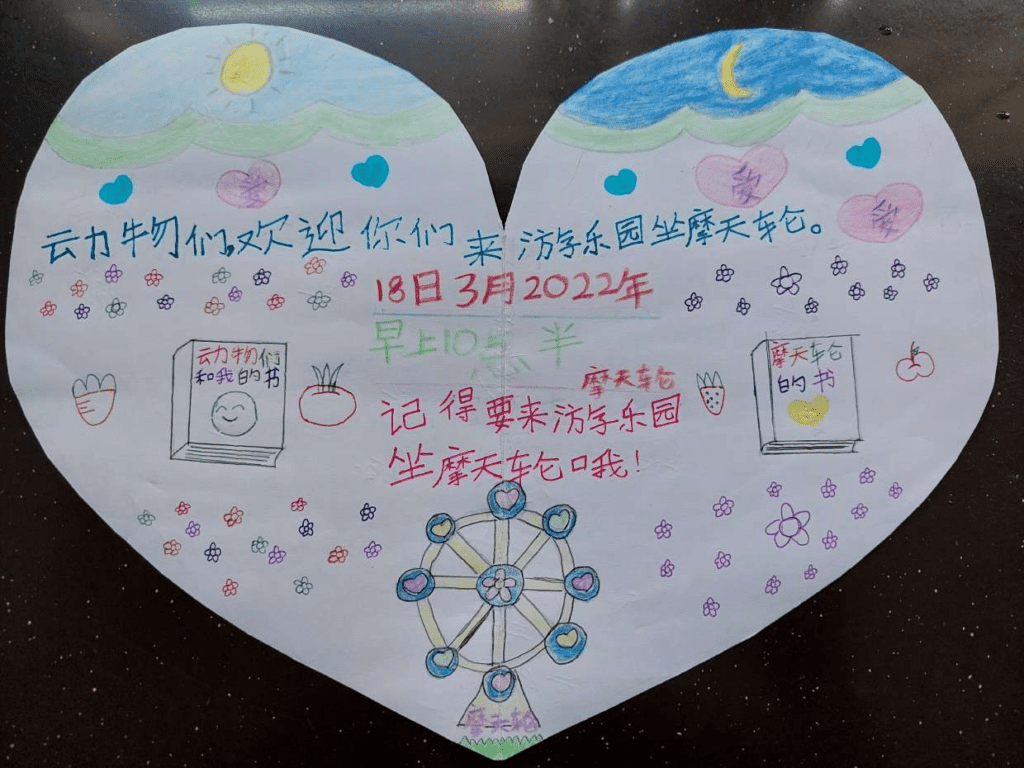 动物们,欢迎你们来游乐园坐摩天轮。
18日3月2022年
早上10点半
摩天轮
记得要来游乐园
坐摩天轮哦！
动物们
和我的书
摩天轮
的书
摩天轮